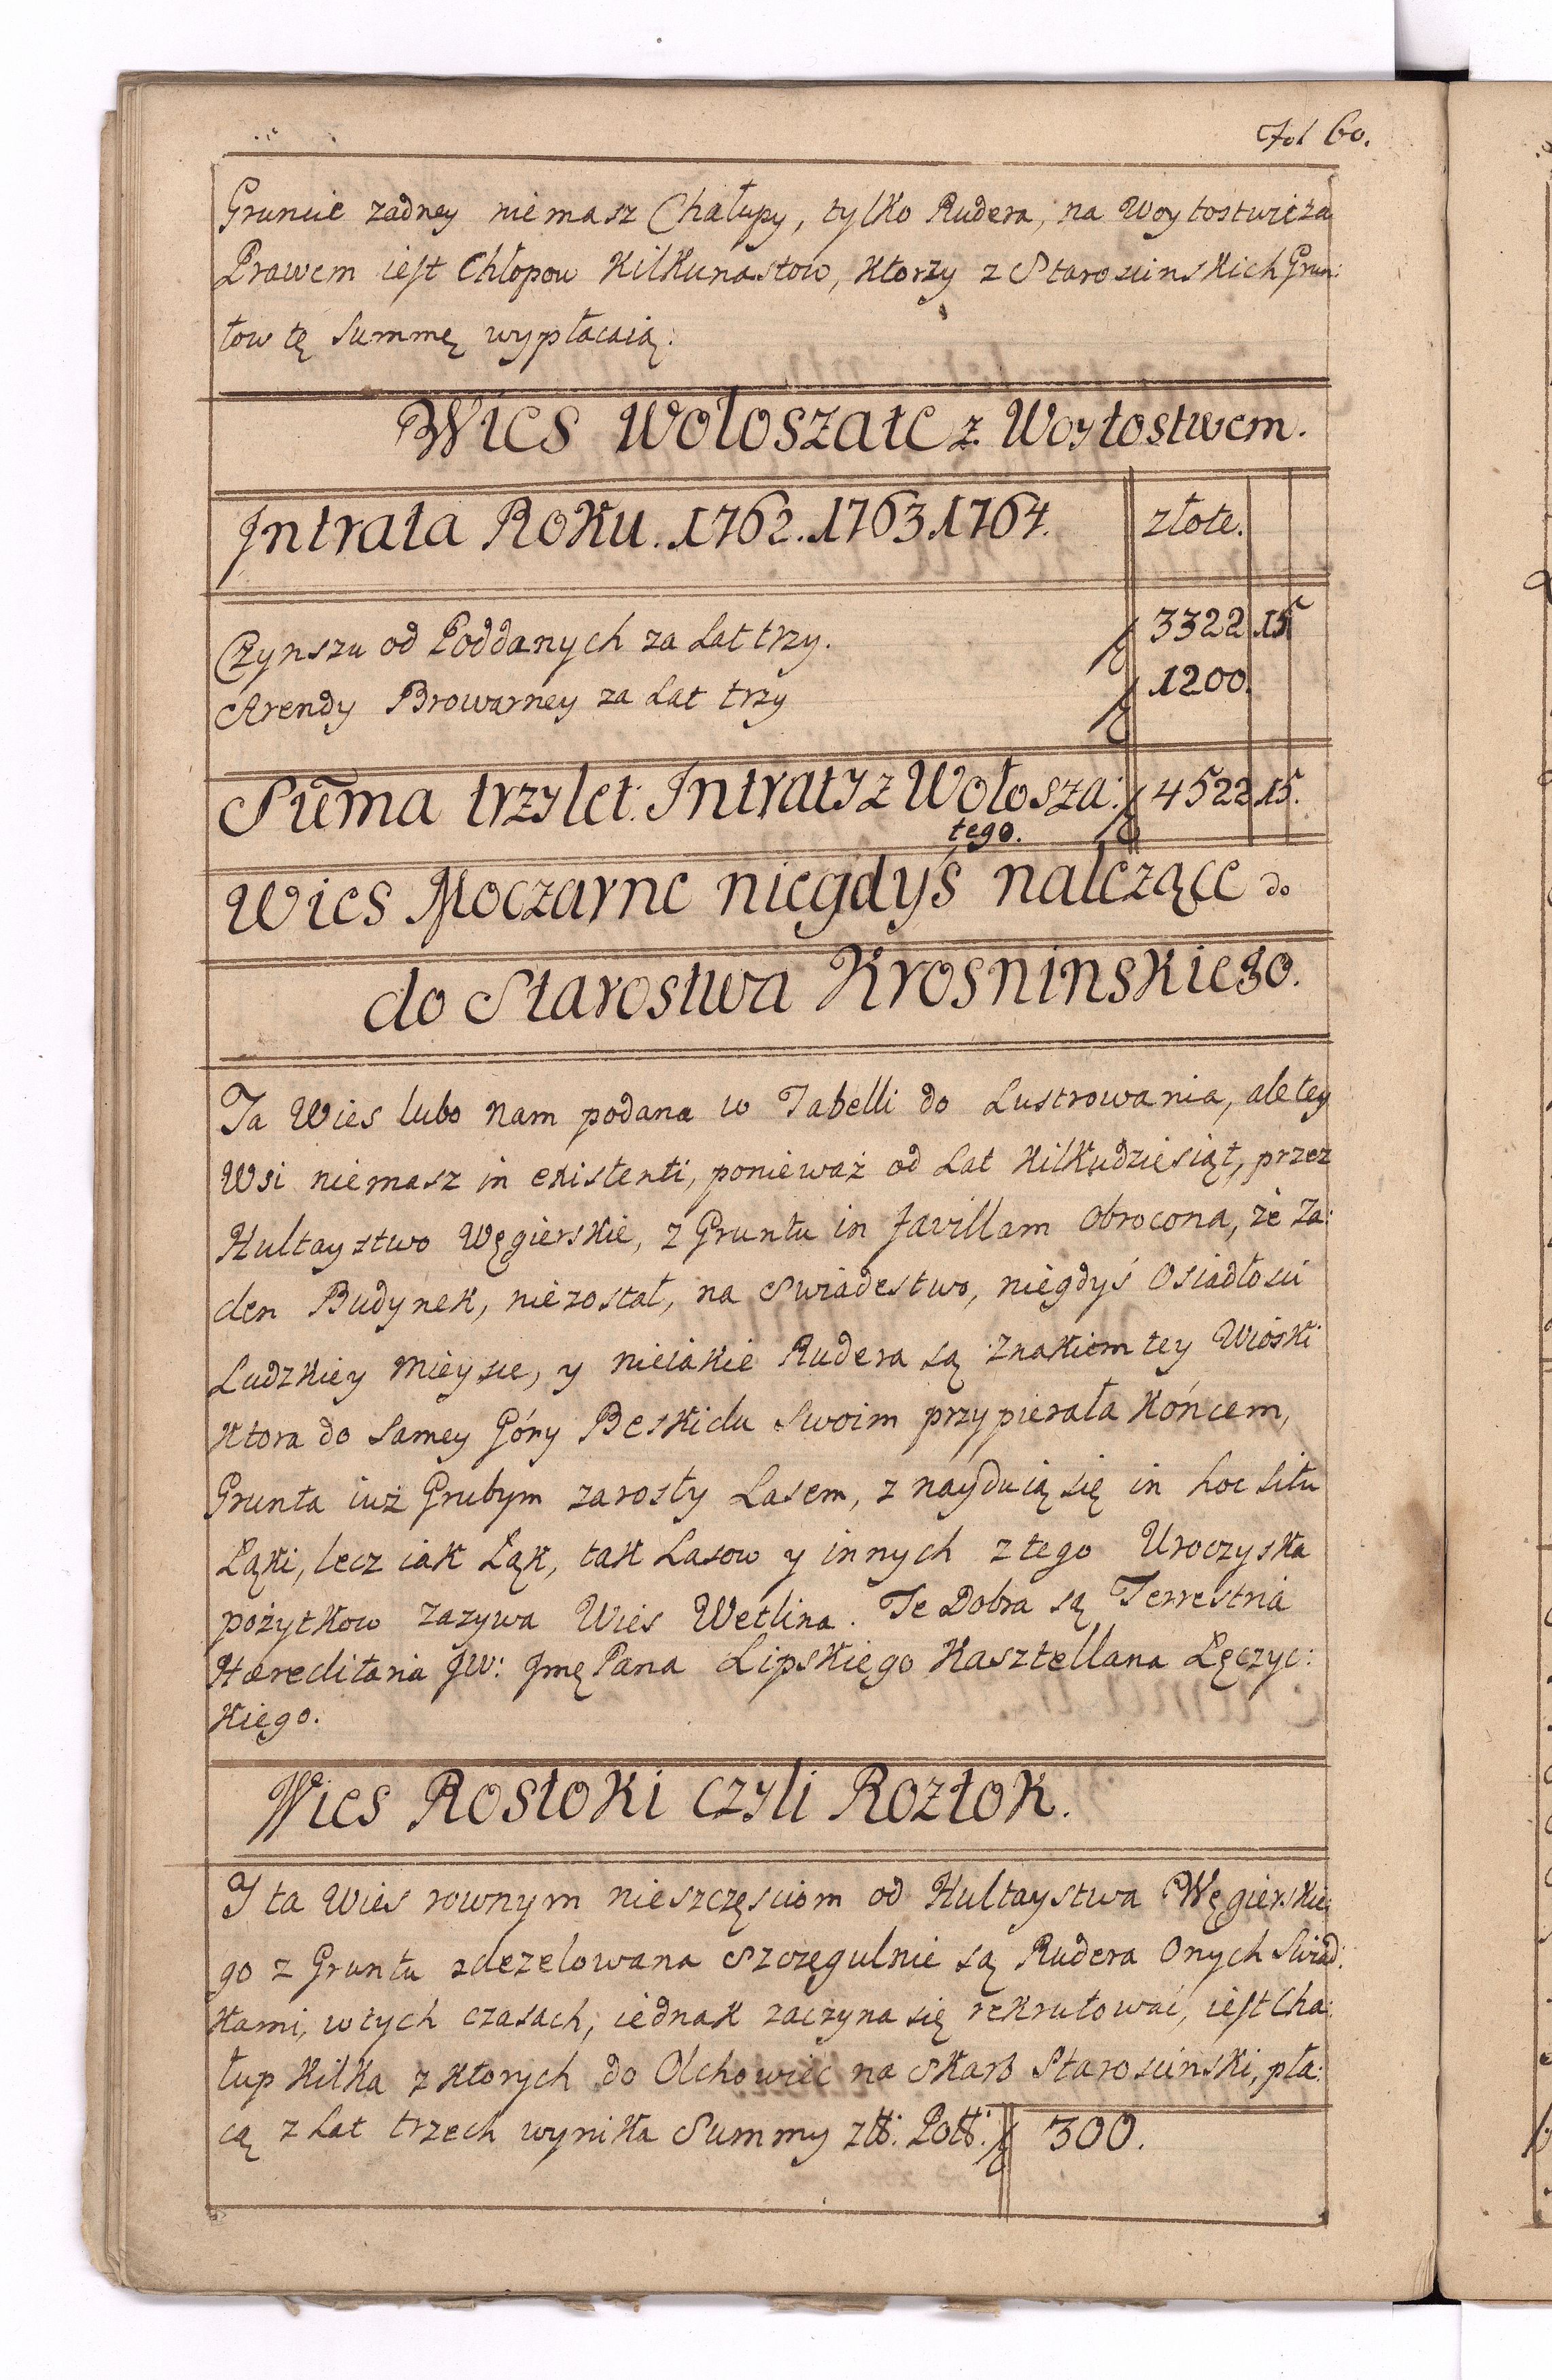 Fol 60.
Gruncie zadney niemasz Chałupy, tylko Rudera, na Woytostwie za
Prawem iest Chłopow Kilkunastow, Ktorzy z Staroscinskich Grun:
tow tę Summę wypłacaią:
Wies Wołoszate z Woytostwem.
Intrata Roku. 1762. 1763. 1764. złote.
Czynszu od Poddanych za Lat trzy. 3322 15
Arendy Browarney za Lat trzy 1200.
Sum̄a trzylet: Intraty z Wołosza: 4522 15.
tego.
Wies Moczarne niegdyś należące do
do Starostwa Krosninskiego.
Ta Wies lubo nam podana w Tabelli do Lustrowania, ale tey
Wsi niemasz in existenti, ponieważ od Lat Kilkudziesiąt, przez
Hultaystwo Węgierskie, z Gruntu in favillam obrocona, że Za:
den Budynek, niezostał, na Swiadestwo, niegdyś Osiadłosci
Ludzkiey Mieysce, y nieiakie Rudera są Znakiem tey Wioski
Ktora do Samey Góry Beskidu Swoim przypierała Końcem,
Grunta iuż Grubym zarosły Lasem, znayduią się in hoc situ
Łąki, lecz iak Łąk, tak Lasow y innych z tego Uroczyska
pożytkow Zazywa Wies Wetlina. Te Dobra są Terrestria
Hæreditaria JW: Jmę Pana Lipskięgo Kasztellana Łęczyc:
Kięgo.
Wies Rostoki czyli Roztok.
I ta Wies rownym nieszczęsciom od Hultaystwa Węgierskie:
go z Gruntu zdezelowana Szczegulnie są Rudera Onych Swiad:
Kami, w tych czasach, iednak zaczyna się rekrutować, iest Cha:
łup Kilka z Ktorych do Olchowiec na Skarb Staroscinski, pła:
cą z Lat trzech wynika Summy złł: Polł: 300.